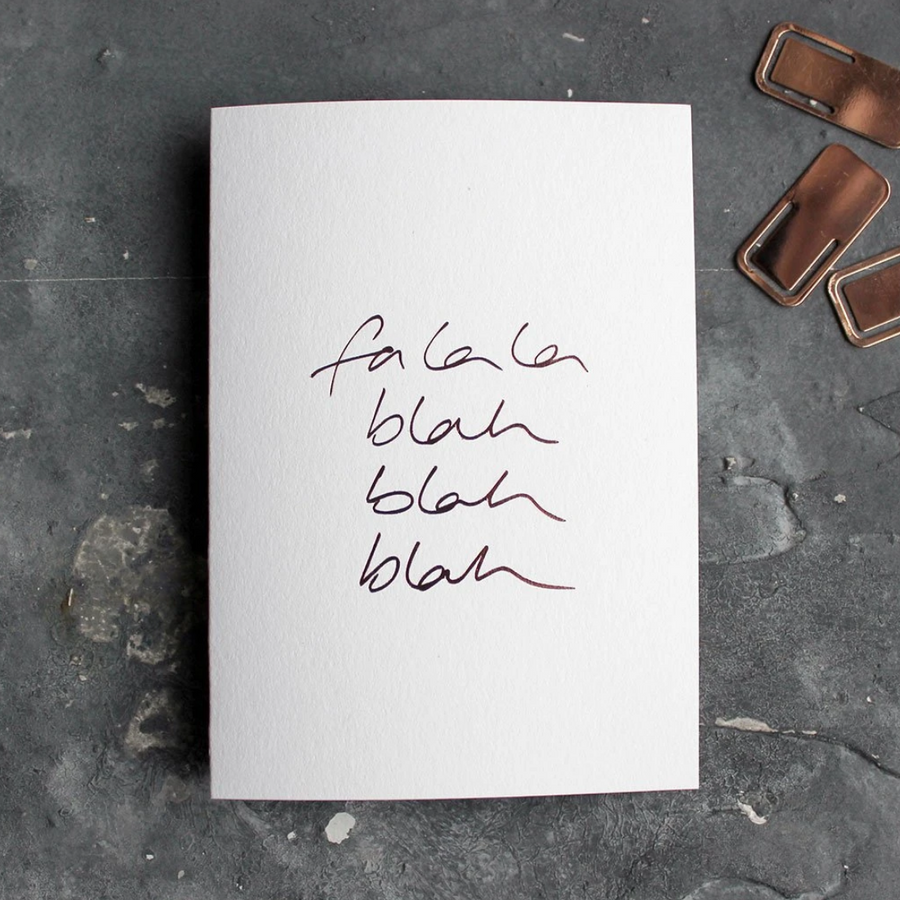 falala
blah
blah
blah